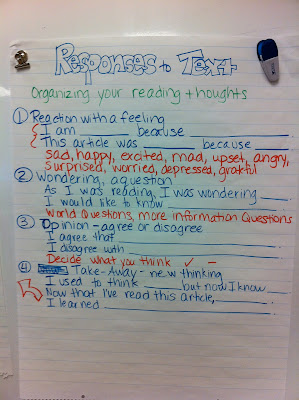 Responses to Text
Organizing your reading + thoughts
① Reaction with a feeling
I am ______ because ______
This article was ______ because ______.
sad, happy, excited, mad, upset, angry,
surprised, worried, depressed, grateful
② Wondering, a question
As I was reading, I was wondering ____.
I would like to know ______.
World Questions, more information Questions
③ Opinion - agree or disagree
I agree that ______
I disagree with ______
Decide what you think ✓ -
④ Take-Away - new thinking
I used to think ____ but now I know ____
Now that I've read this article,
I learned ______.